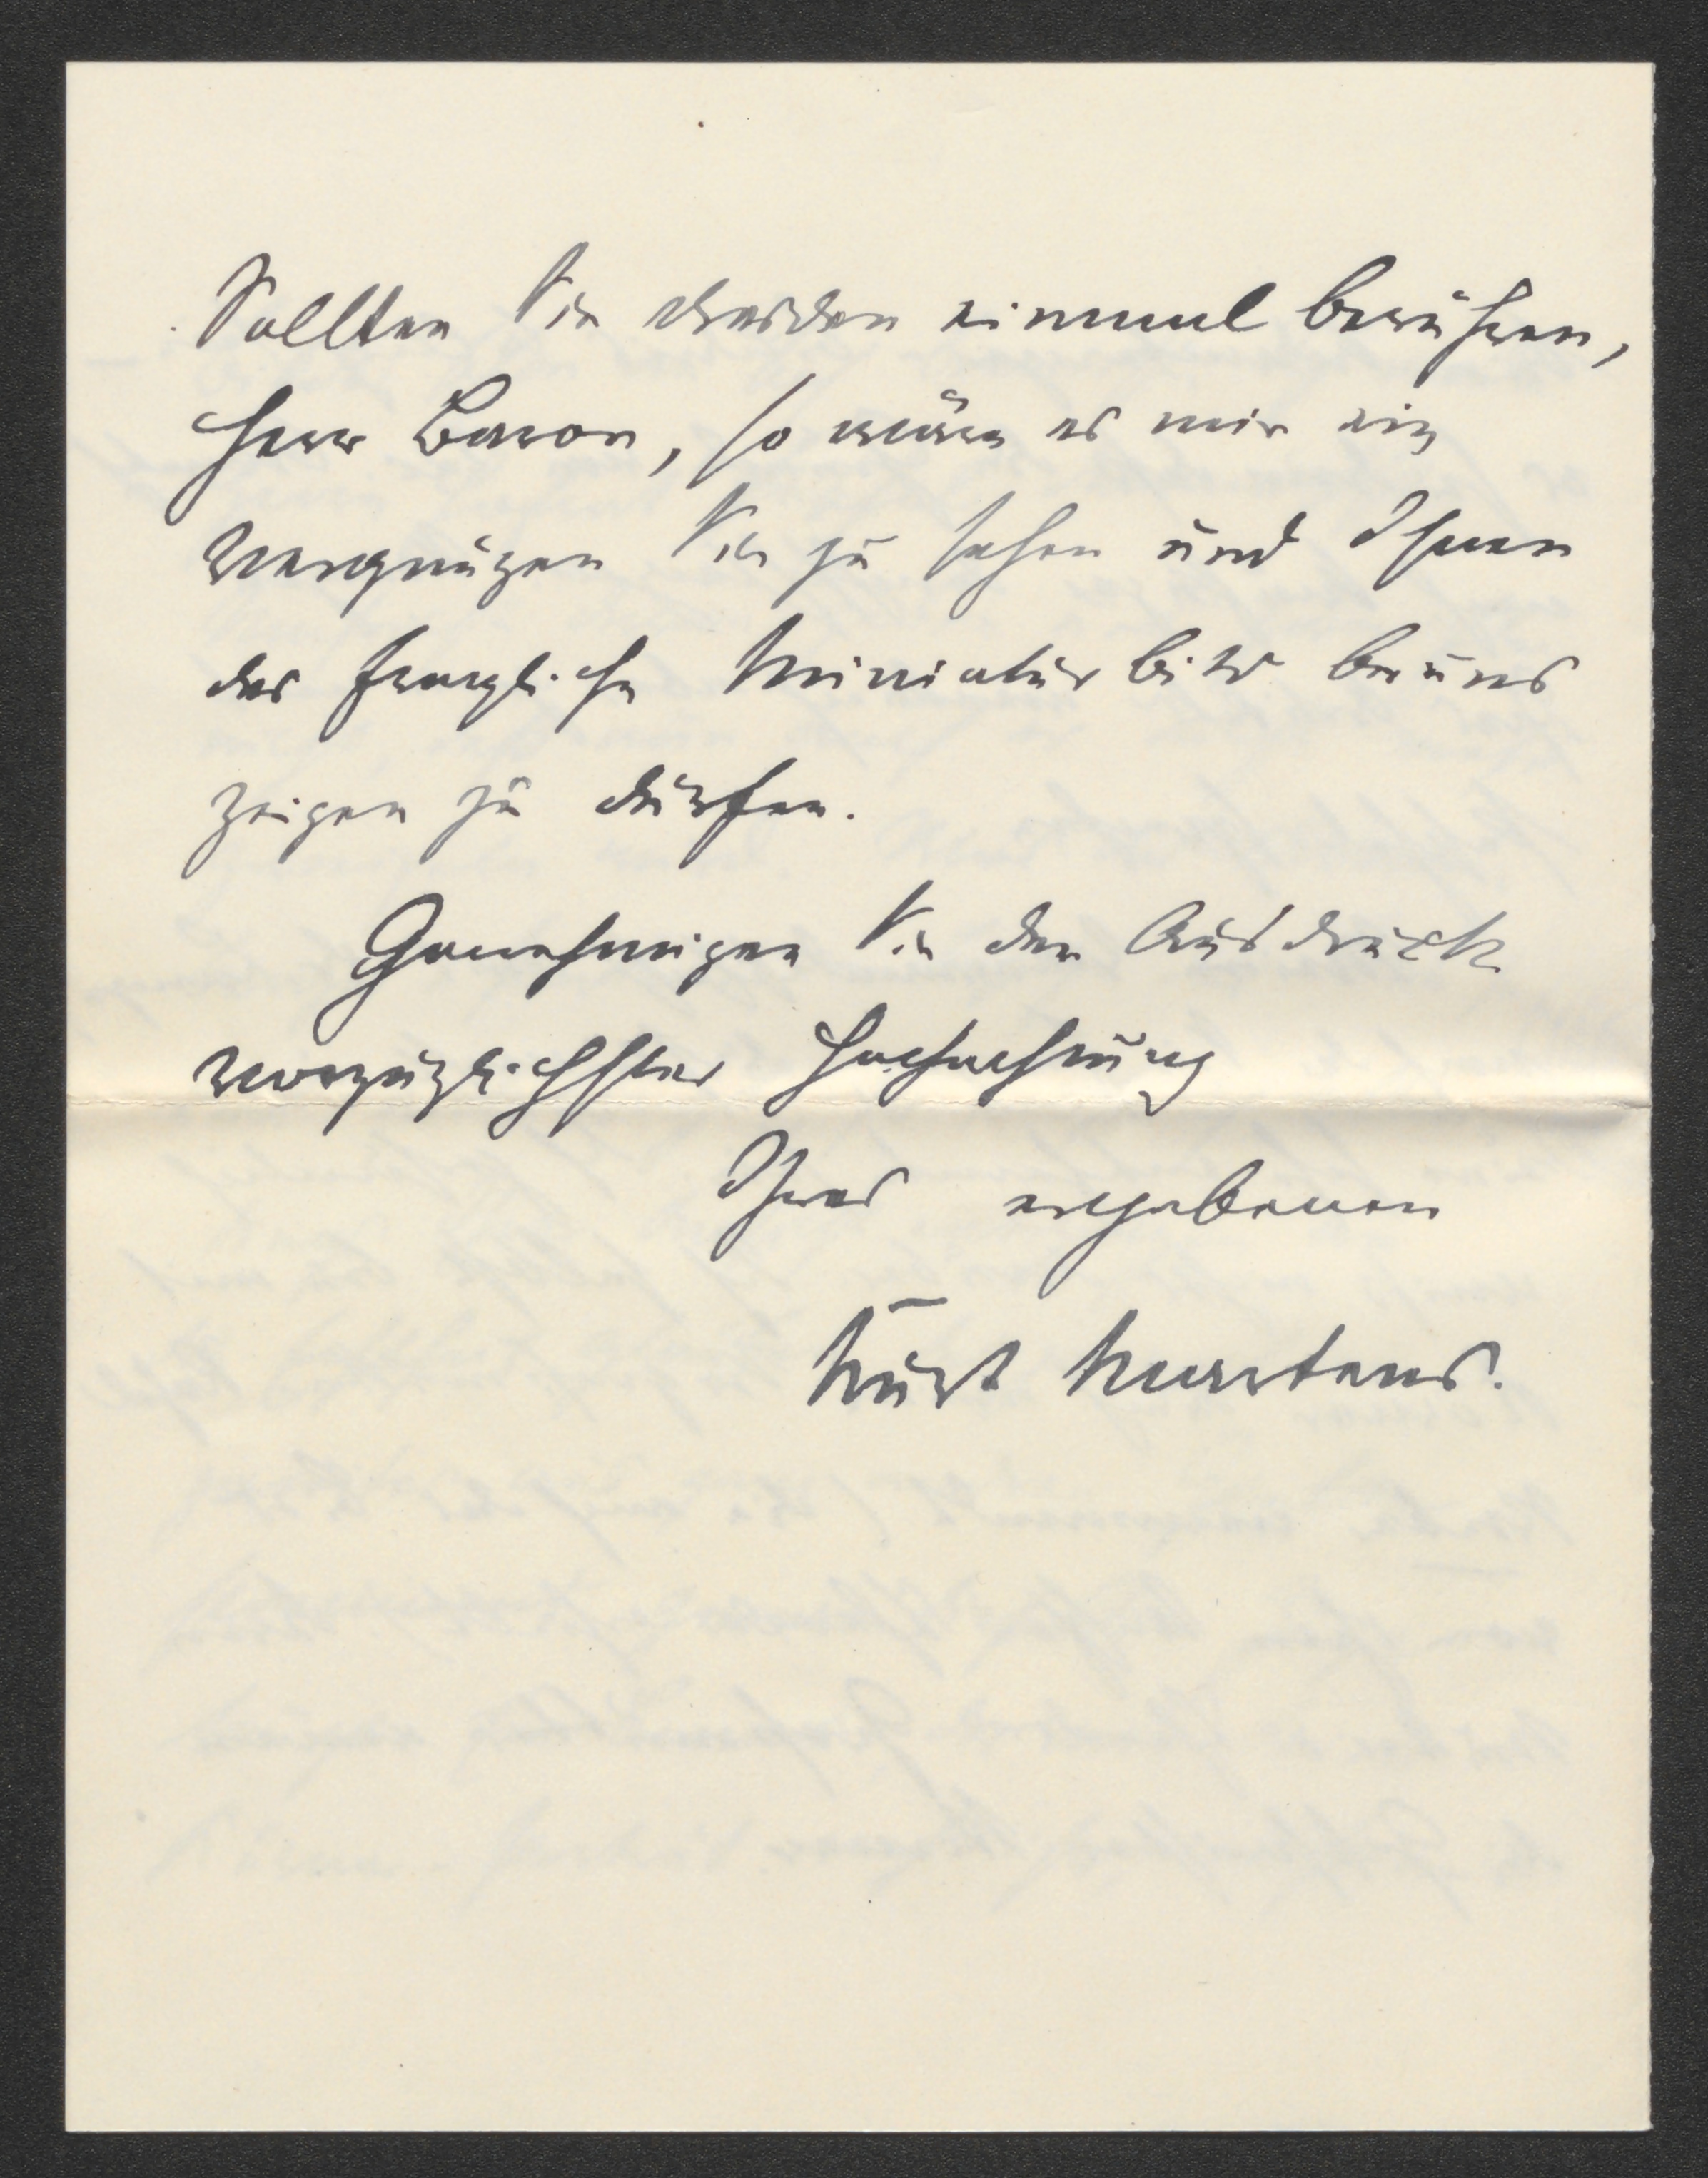 Sollten Sie Dresden einmal berühren,
Herr Baron, so wäre es mir ein
Vergnügen Sie zu sehen und Ihnen
das fragliche Miniaturbild bei uns
zeigen zu dürfen.
Genehmigen Sie den Ausdruck
vorzüglichster Hochachtung
Ihres ergebenen
Kurt Martens.